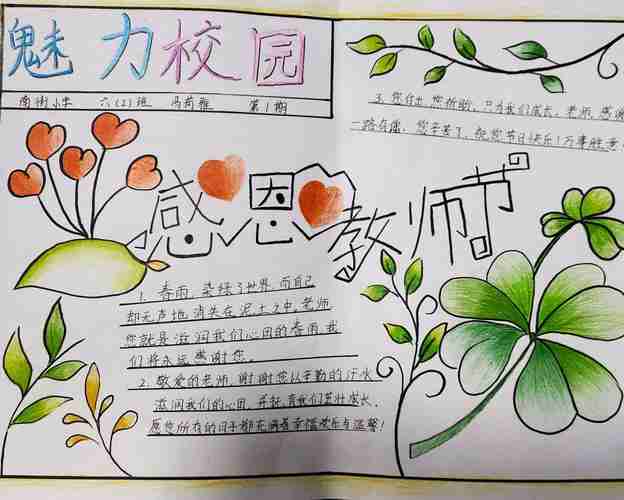 魅力校园
南街小学 六(2)班 马莉雅 第1期
感恩教师节
1、春雨,染绿了世界,而自己
却无声地消失在泥土之中,老师
您就是滋润我们心田的春雨,我
们将永远感谢您。
2、敬爱的老师,谢谢您以辛勤的汗水
滋润我们的心田,并抚育我们茁壮成长。
愿您所有的日子都充满着幸福欢乐与温馨!
3、您付出,您祈盼,只为我们成长,老师,感谢
一路有您,您辛苦了,祝您节日快乐!万事胜意